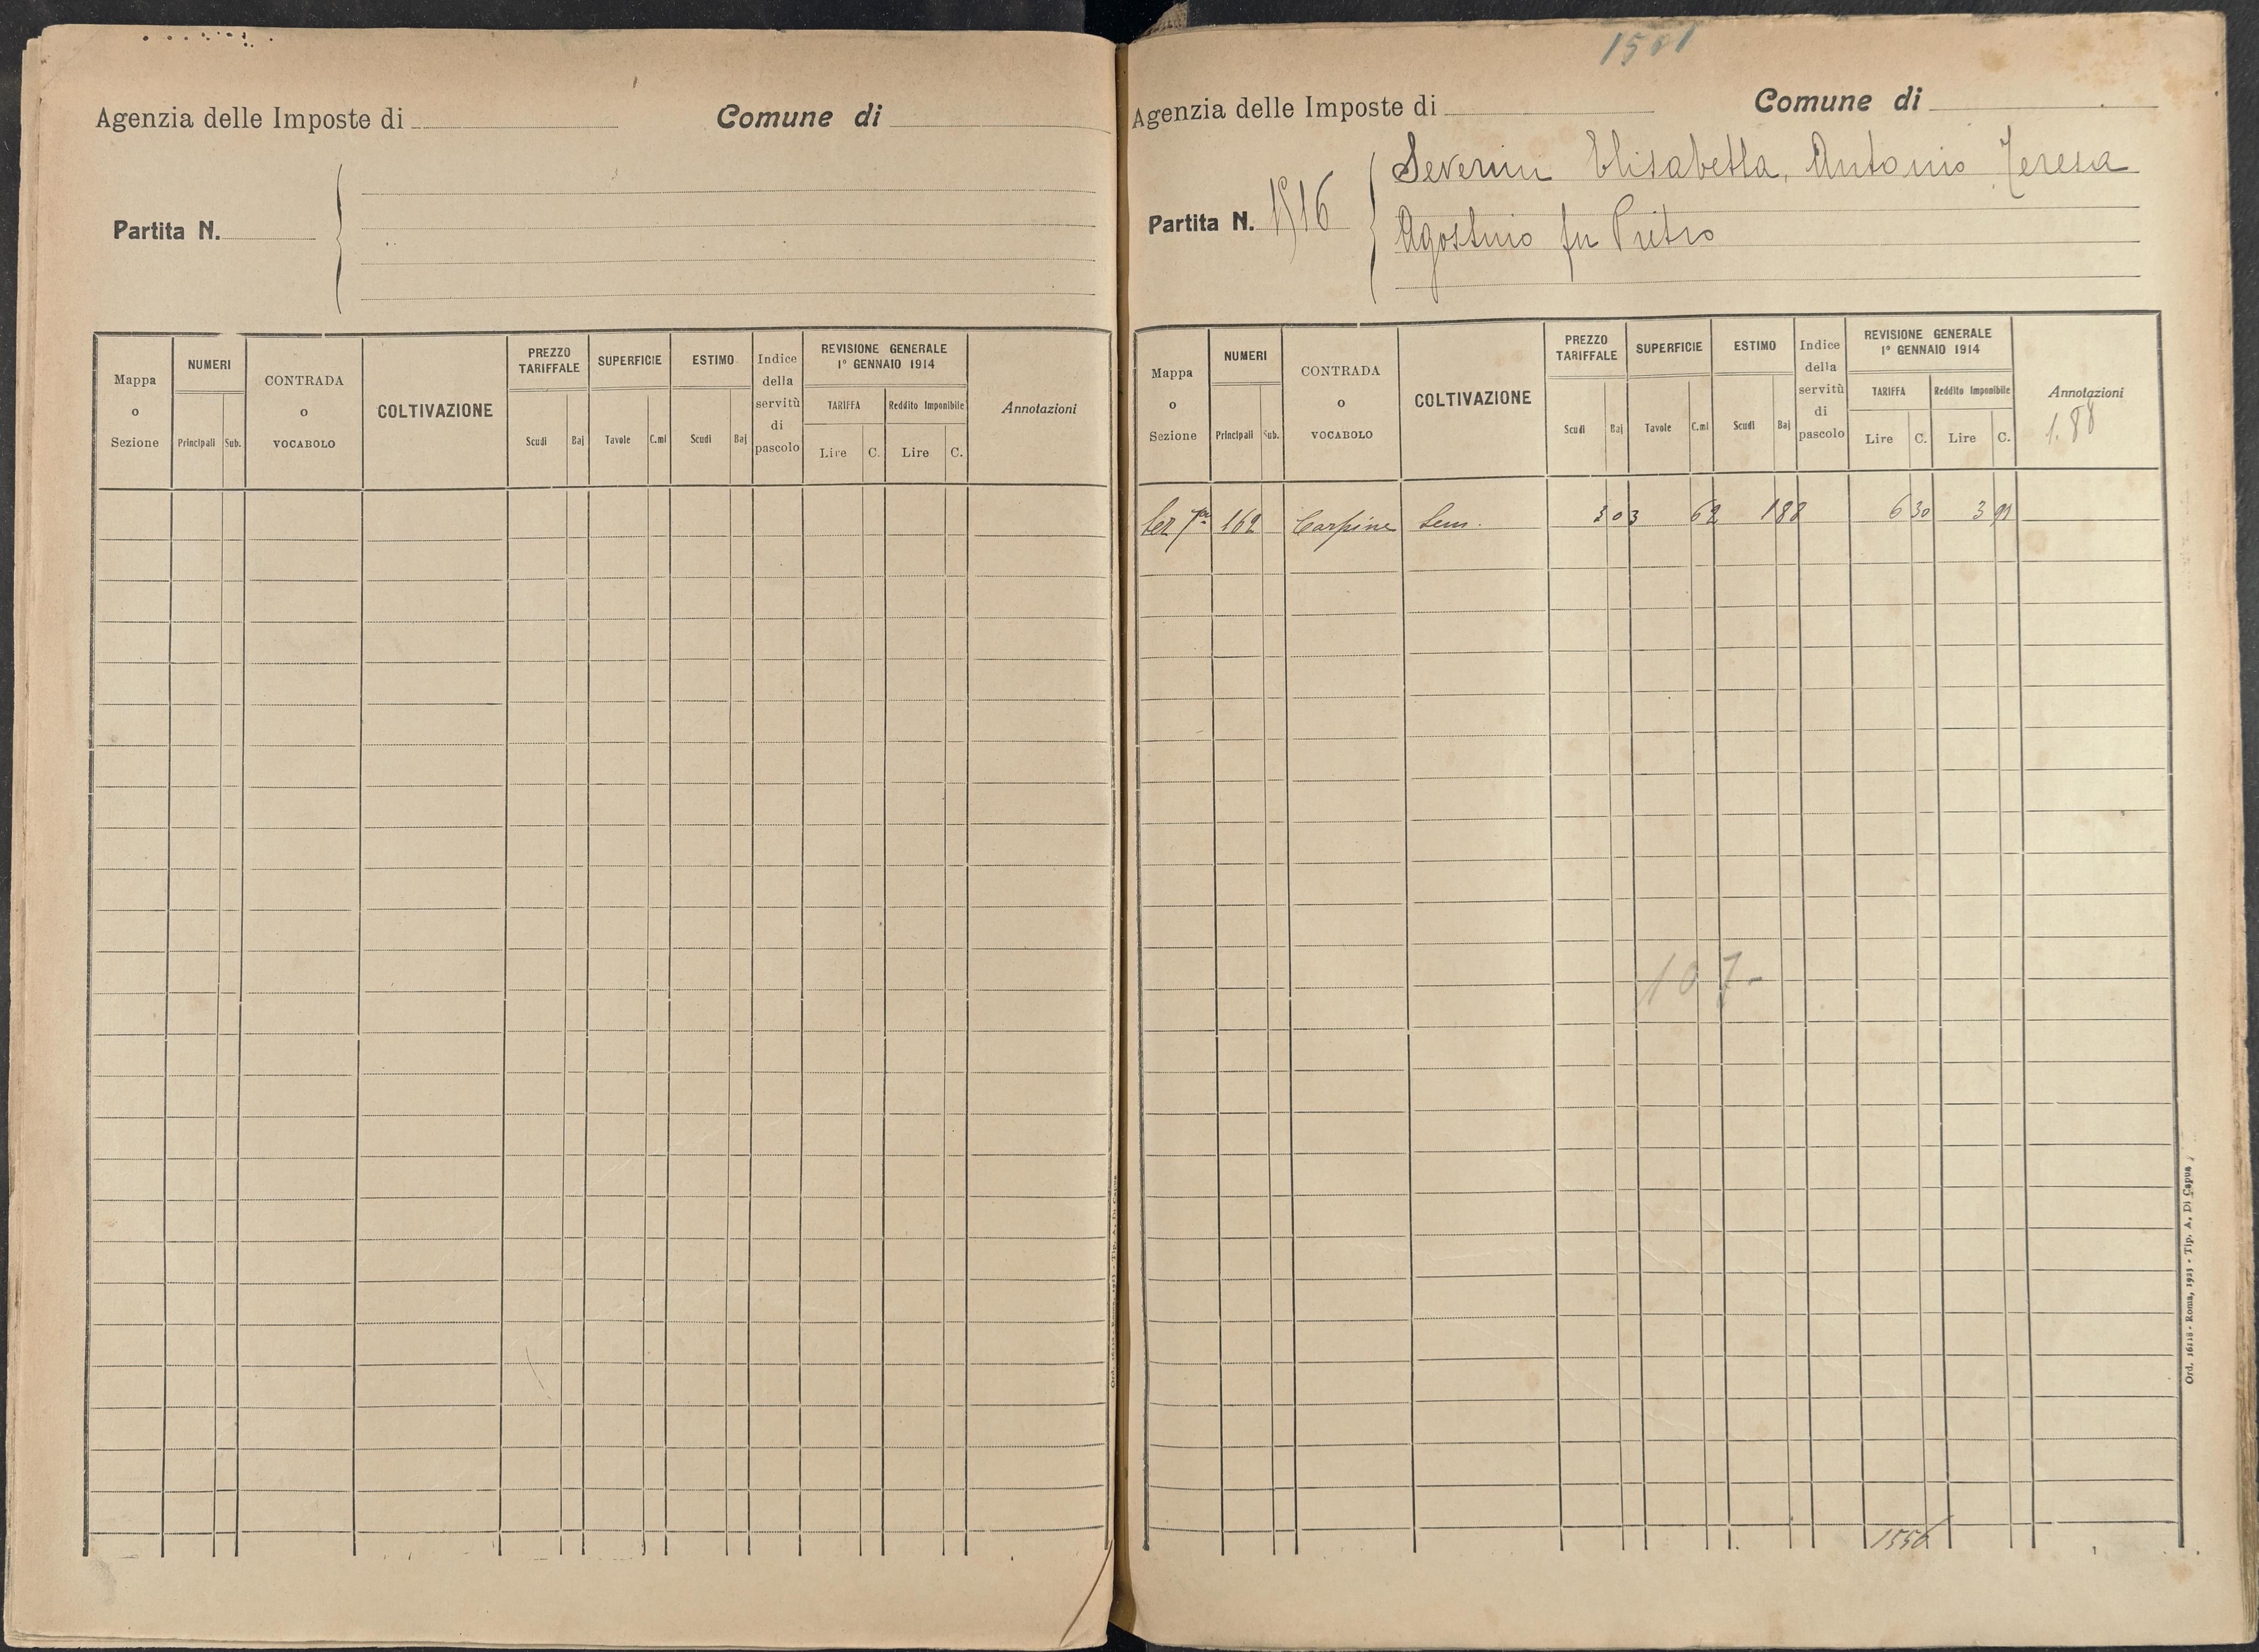 Agenzia delle Imposte di
Comune di
Partita N.
Mappa o Sezione
NUMERI
Principali Sub.
CONTRADA o VOCABOLO
COLTIVAZIONE
PREZZO TARIFFALE
Scudi Baj
SUPERFICIE
Tavole C.mi
ESTIMO
Scudi Baj
Indice della servitù di pascolo
REVISIONE GENERALE
1° GENNAIO 1914
TARIFFA
Lire C.
Reddito Imponibile
Lire C.
Annotazioni
Agenzia delle Imposte di
Comune di
Partita N. 1516
Severini Elisabetta, Antonio Teresa
Agostino fu Pietro
Mappa o Sezione
NUMERI
Principali Sub.
CONTRADA o VOCABOLO
COLTIVAZIONE
PREZZO TARIFFALE
Scudi Baj
SUPERFICIE
Tavole C.mi
ESTIMO
Scudi Baj
Indice della servitù di pascolo
REVISIONE GENERALE
1° GENNAIO 1914
TARIFFA
Lire C.
Reddito Imponibile
Lire C.
Annotazioni
1.88
162 Carpine Sem. 3 03 62 1 88 6 30 3 91
107-
1556
Ord. 16118 - Roma, 1923 - Tip. A. Di Capua